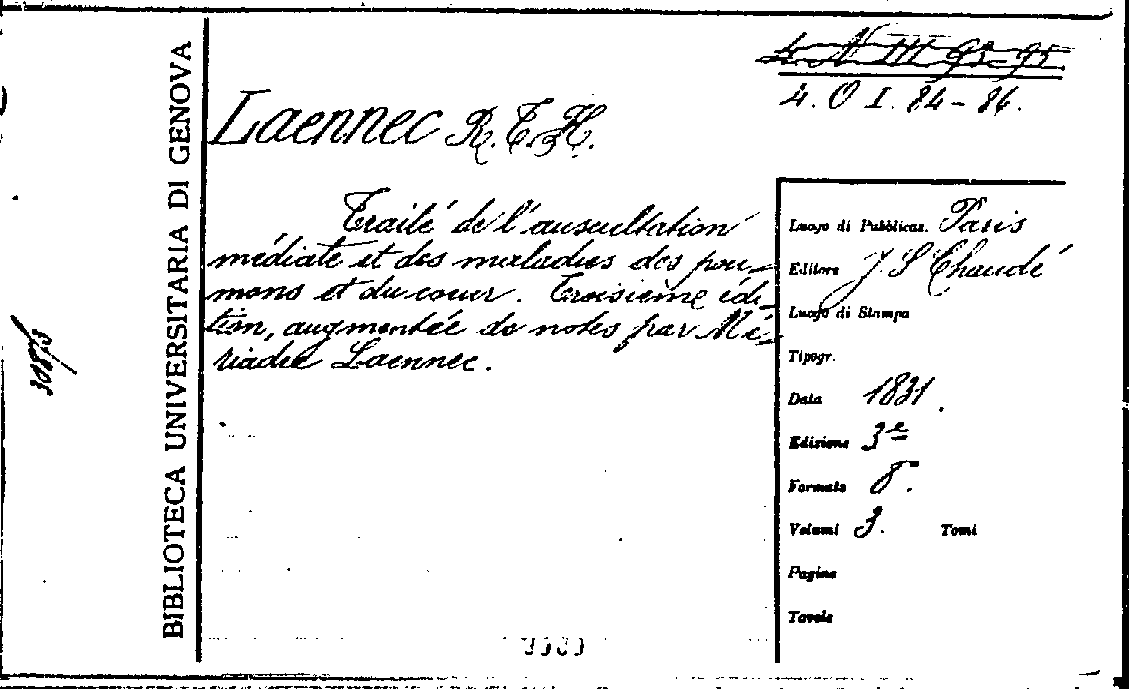 4. N III 93-95
4. O I. 84-86.
Laennec R. T. H.
Traité de l'auscultation
médiate et des maladies des pou-
mons et du coeur. Troisième édi-
tion, augmentée de notes par Mé-
riadec Laennec.
BIBLIOTECA UNIVERSITARIA DI GENOVA
Luogo di Pubblicaz. Paris
Editore J S Chaudé
Luogo di Stampa
Tipogr.
Data 1831.
Edizione 3e
Formato 8°.
Volumi 3. Tomi
Pagine
Tavole